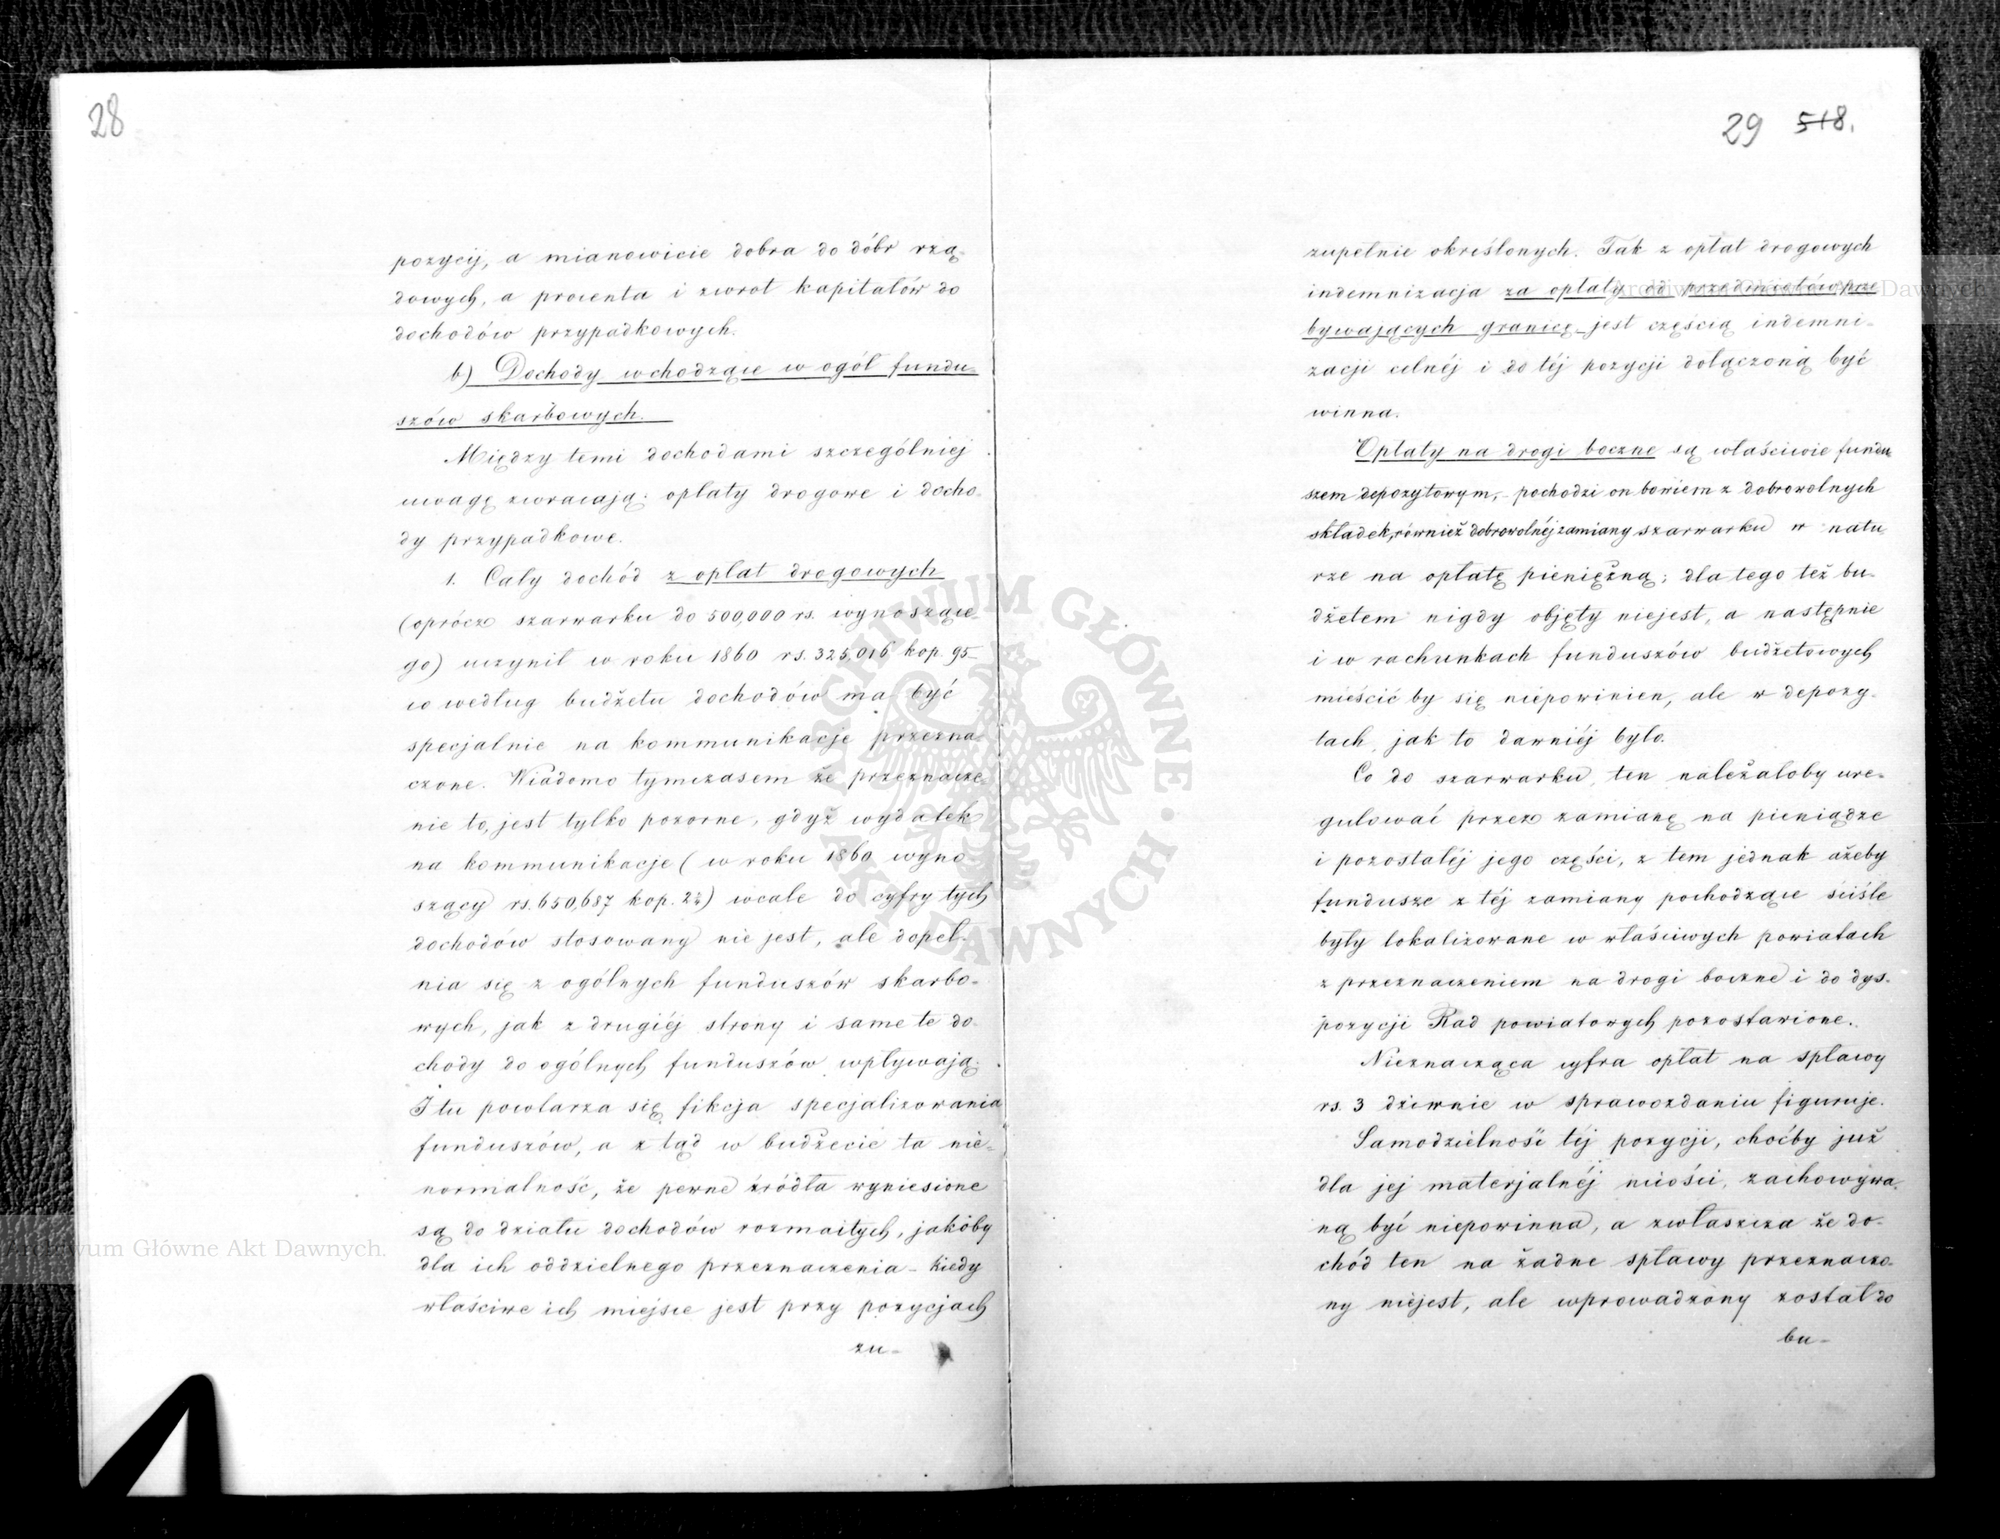 28
pozycij, a mianowicie dobra do dóbr rzą-
dowych, a procenta i zwrot kapitałów do
dochodów przypadkowych.
b) Dochody wchodzące w ogół fundu-
szów skarbowych.
Między temi dochodami szczególniej
uwagę zwracają: opłaty drogowe i docho-
dy przypadkowe.
1. Cały dochód z opłat drogowych
(oprócz szarwarku do 500,000 rs. wynoszące-
go) uczynił w roku 1860 rs. 325,016 kop. 95
co według budżetu dochodów ma być
specjalnie na kommunikacje przezna-
czone. Wiadomo tymczasem że przeznacze-
nie to, jest tylko pozorne, gdyż wydatek
na kommunikacje (w roku 1860 wyno
szący rs. 650,687 kop. 2½) wcale do cyfry tych
dochodów stosowany nie jest, ale dopeł-
nia się z ogólnych funduszów skarbo-
wych, jak z drugiéj strony i same te do-
chody do ogólnych funduszów wpływają.
I tu powtarza się fikcja specjalizowania
funduszów, a z tąd w budżecie ta nie-
normalność, że pewne źródła wyniesione
są do działu dochodów rozmaitych, jakoby
dla ich oddzielnego przeznaczenia - kiedy
właściwe ich miejsce jest przy pozycjach
zu-
29 518.
zupełnie określonych. Tak z opłat drogowych
indemnizacja za opłaty od przedmiotów prze
bywających granicę jest częścią indemni-
zacji celnéj i do téj pozycji dołączoną być
winna.
Opłaty na drogi boczne są właściwie fundu
szem depozytowym, - pochodzi on bowiem z dobrowolnych
składek, również dobrowolnéj zamiany szarwarku w natu-
rze na opłatę pieniężną; dla tego też bu-
dżetem nigdy objęty niejest, a następnie
i w rachunkach funduszów budżetowych
mieścić by się niepowinien, ale w depozy-
tach, jak to dawniéj było.
Co do szarwarku, ten należałoby ure-
gulować przez zamianę na pieniądze
i pozostałéj jego części, z tem jednak ażeby
fundusze z téj zamiany pochodzące ściśle
były lokalizowane w właściwych powiatach
z przeznaczeniem na drogi boczne i do dys-
pozycji Rad powiatowych pozostawione.
Nieznacząca cyfra opłat na spławy
rs. 3 dziwnie w sprawozdaniu figuruje.
Samodzielność téj pozycji, choćby już
dla jej materjalnéj nicości, zachowywa-
ną być niepowinna, a zwłaszcza że do-
chód ten na żadne spławy przeznaczo-
ny niejest, ale wprowadzony został do
bu-
ARCHIWUM GŁÓWNE AKT DAWNYCH
Archiwum Główne Akt Dawnych.
Archiwum Główne Akt Dawnych.